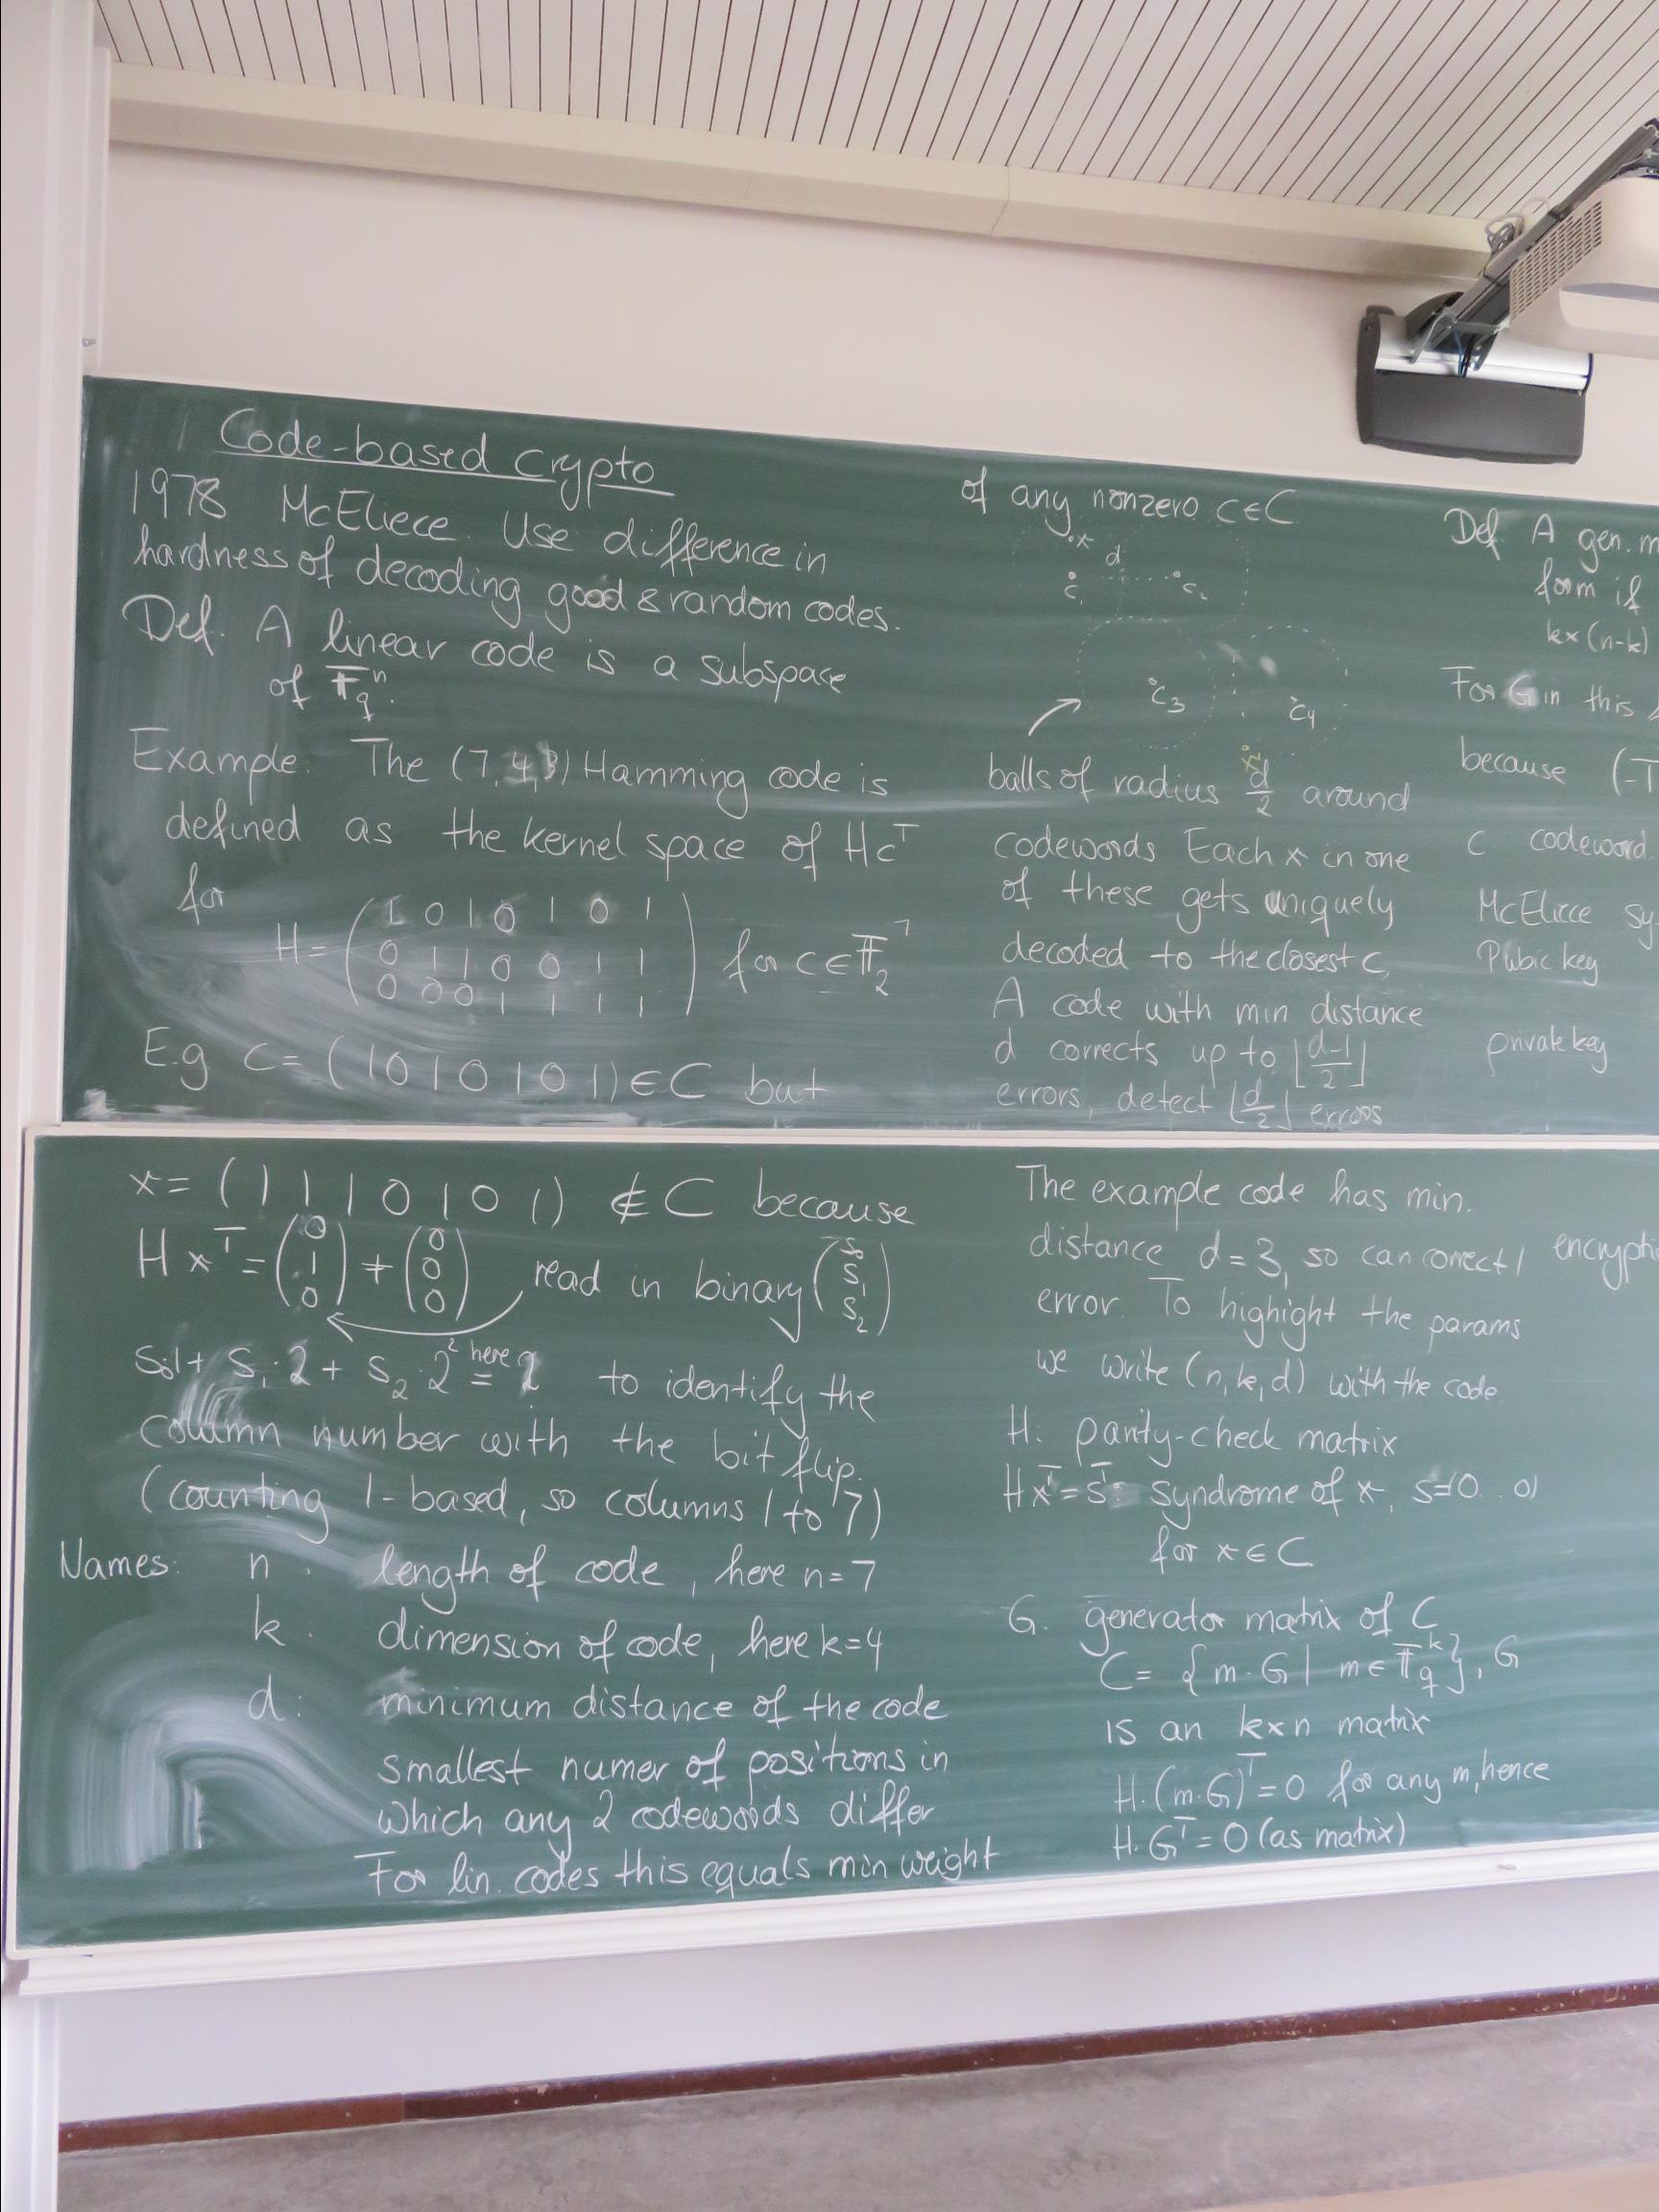 Code-based crypto
1978 McEliece. Use difference in
hardness of decoding good & random codes.
Def. A linear code is a subspace
of 𝔽_q^n.
Example: The (7,4,3) Hamming code is
defined as the kernel space of Hc^T
for
H = ( 1 0 1 0 1 0 1
0 1 1 0 0 1 1
0 0 0 1 1 1 1 ) for c ∈ 𝔽_2^7
E.g c = (1 0 1 0 1 0 1) ∈ C but
x = (1 1 1 0 1 0 1) ∉ C because
H x^T = (0 1 0) + (0 0 0) read in binary (s_0 s_1 s_2)
s_0·1 + s_1·2 + s_2·2^2 =^here 2 to identify the
column number with the bit flip.
(counting 1-based, so columns 1 to 7)
Names: n : length of code, here n=7
k : dimension of code, here k=4
d : minimum distance of the code
smallest numer of positions in
which any 2 codewords differ
For lin. codes this equals min weight
of any nonzero c∈C
x
d
c_1 c_2
c_3 c_4
balls of radius d/2 around
codewords Each x in one
of these gets uniquely
decoded to the closest c.
A code with min distance
d corrects up to ⌊(d-1)/2⌋
errors, detect ⌊d/2⌋ errors
The example code has min.
distance d=3, so can correct 1
error. To highight the params
we write (n,k,d) with the code
H: parity-check matrix
Hx^T = s^T: syndrome of x, s=(0..0)
for x∈C
G. generator matrix of C
C = {m·G | m∈𝔽_q^k}, G
is an k×n matrix
H·(m·G)^T = 0 for any m, hence
H·G^T = 0 (as matrix)
Def A gen.
form if
k×(n-k)
For G in this
because (-
C codeword
McEliece
Pubic key
private key